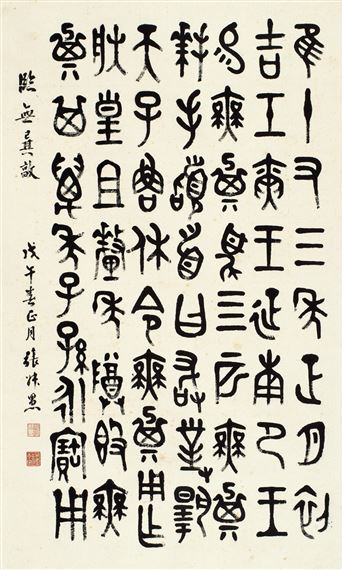 隹十又三年正月初
吉壬寅王征南尸王
易無㠱馬四匹無㠱
拜手稽首曰敢對揚
天子魯休令無㠱用乍
朕皇且釐季尊𣪘無
㠱其萬年子孫永寶用
臨無㠱敦 戊午春正月張